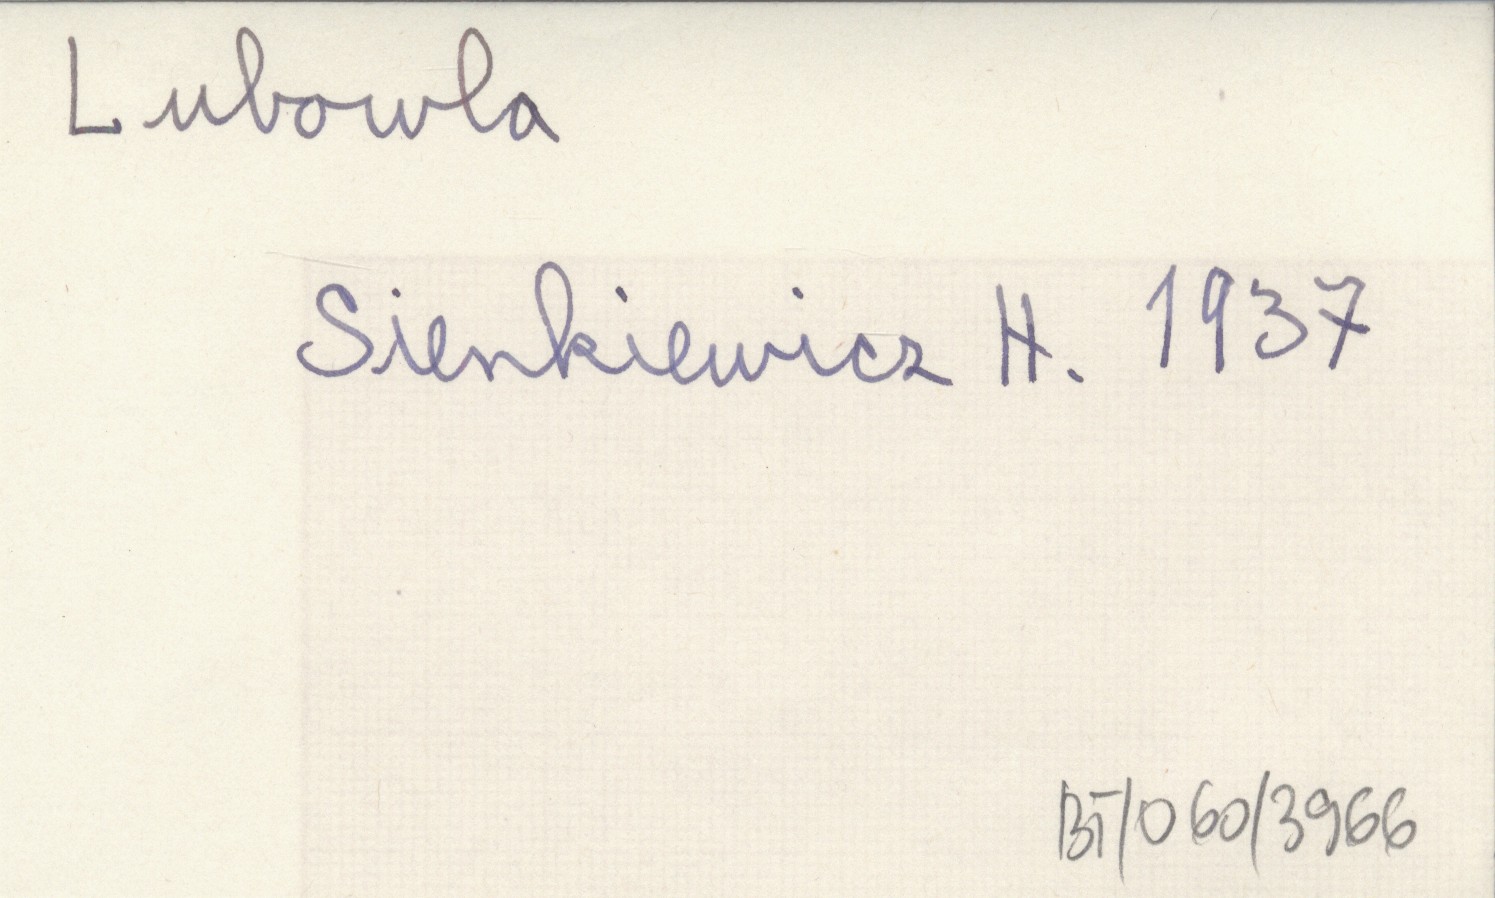 Lubowla
Sienkiewicz H. 1937
BT/060/3966